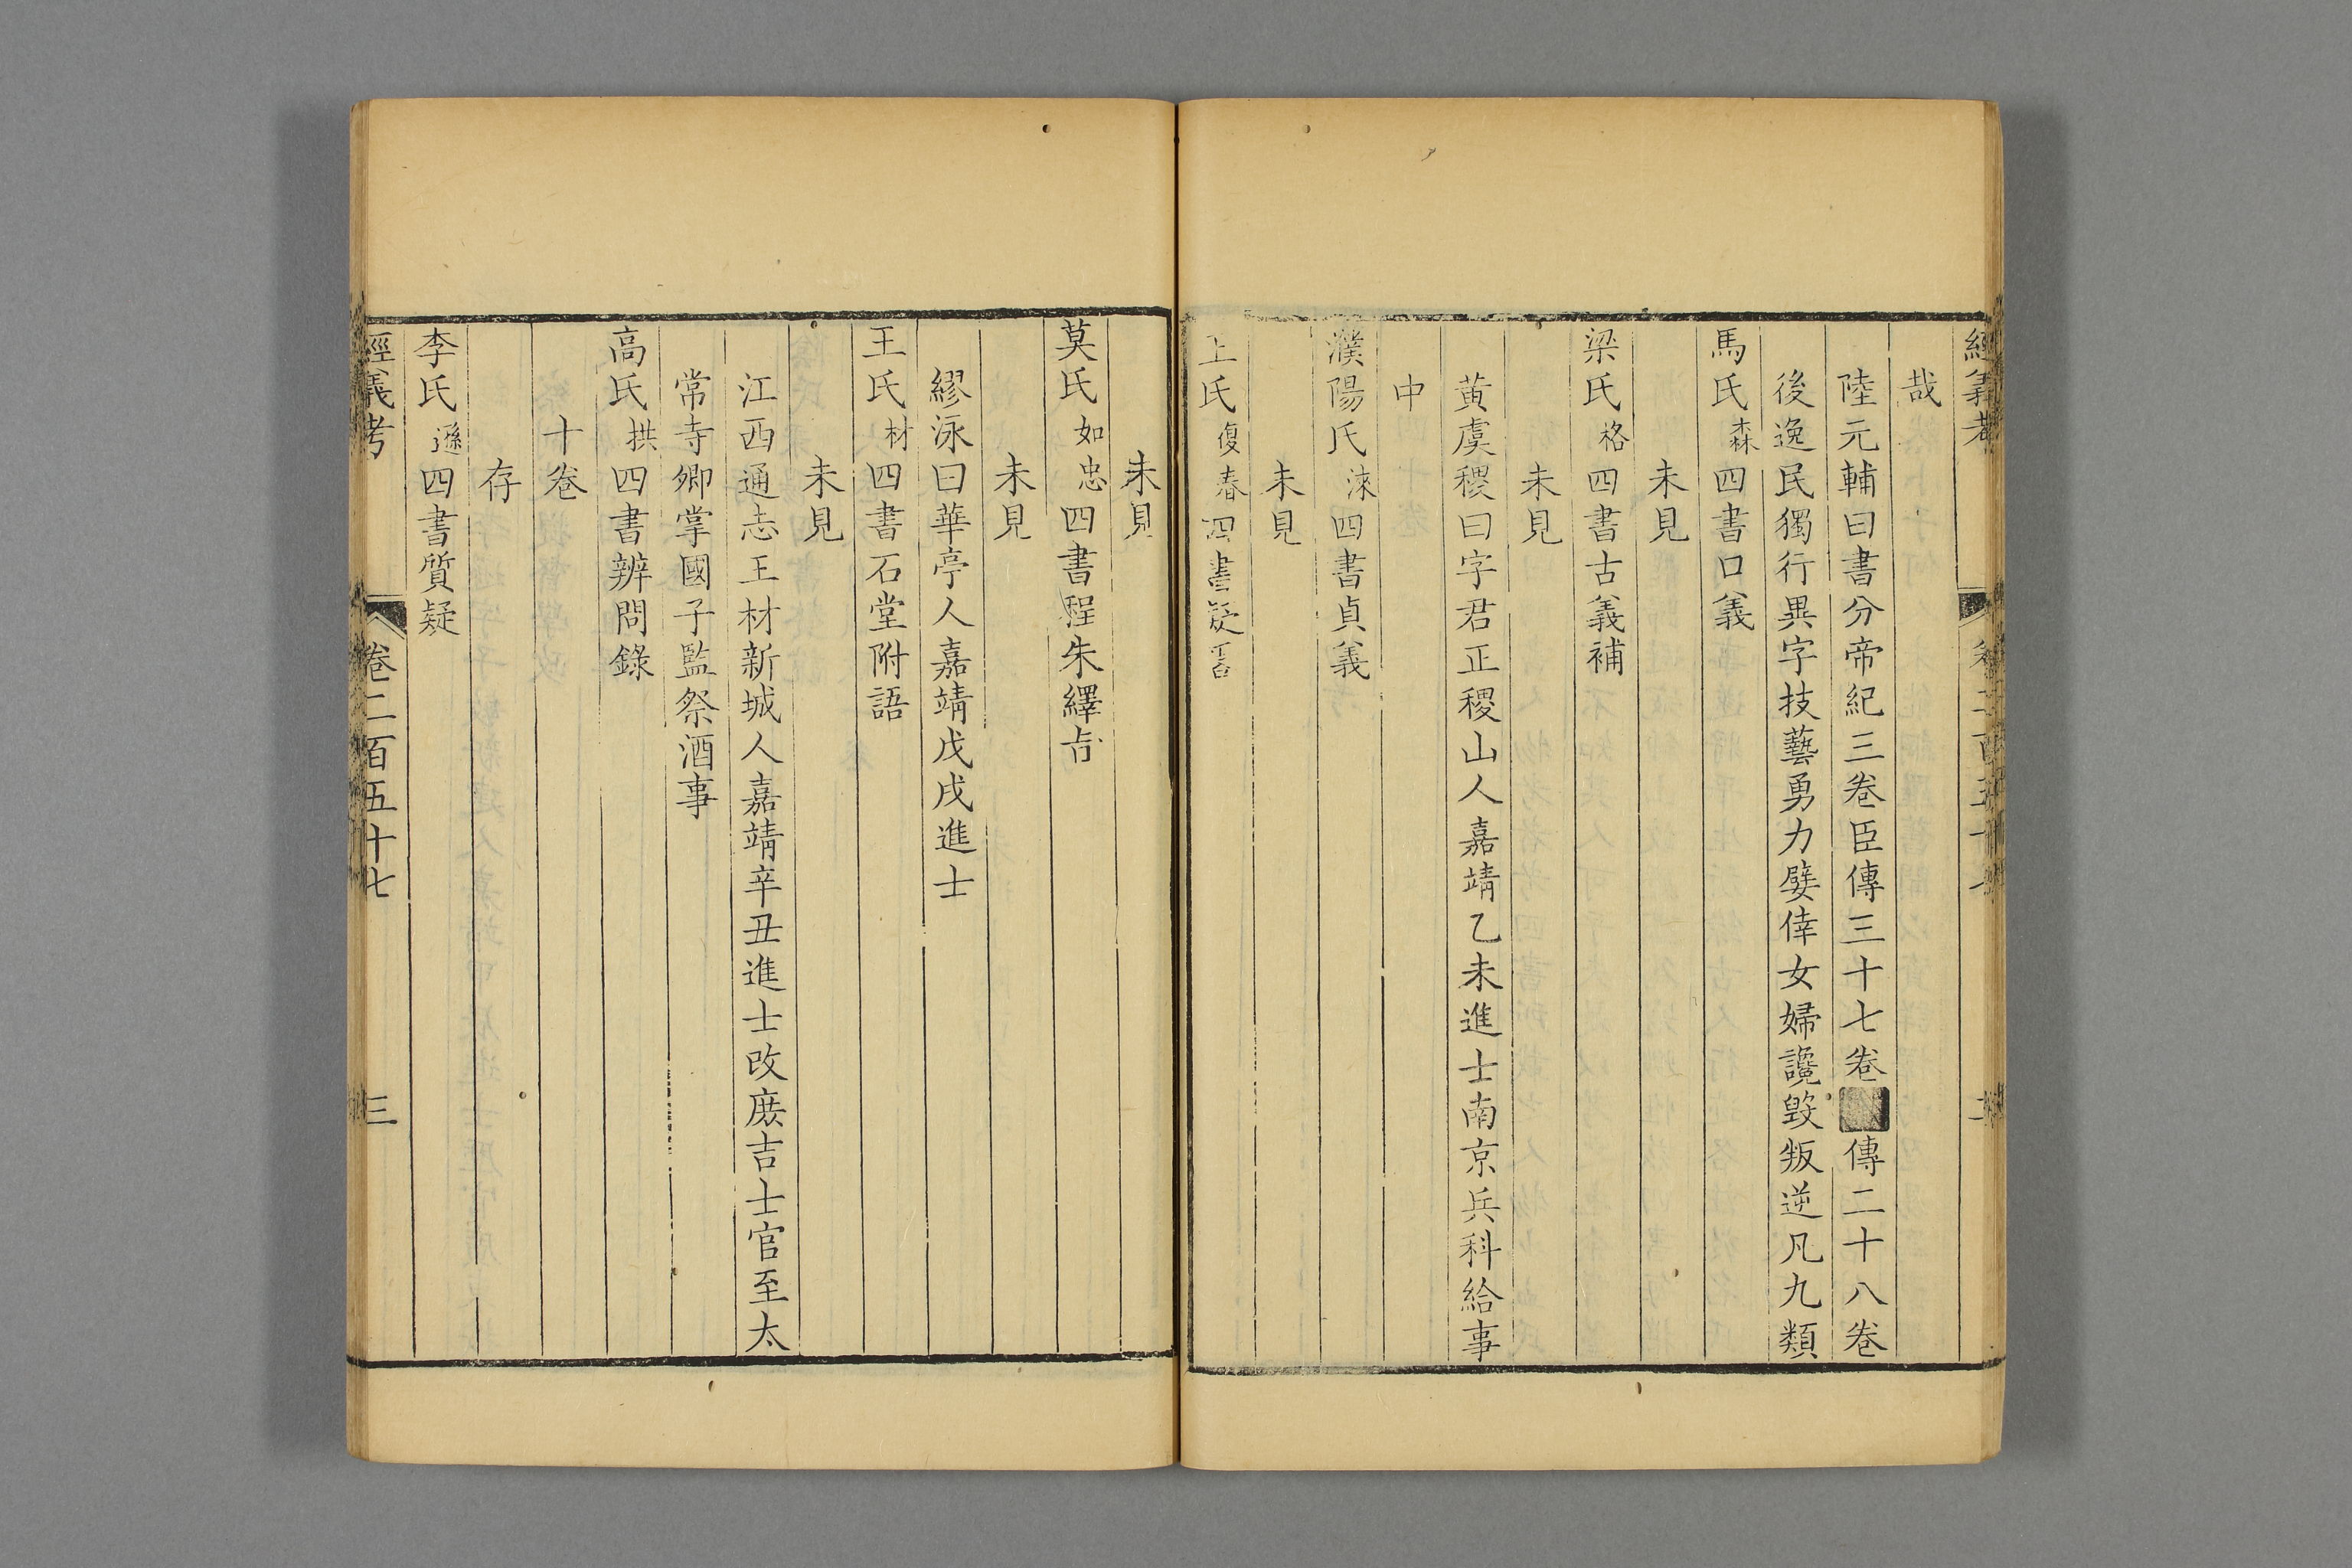 經義考
哉
陸元輔曰書分帝紀三卷臣傳三十七卷傳二十八卷
後逸民獨行異字技藝勇力嬖倖女婦讒毀叛逆凡九類
馬氏森四書口義
未見
梁氏格四書古義補
未見
黃虞稷曰字君正稷山人嘉靖乙未進士南京兵科給事
中
濮陽氏淶四書貞義
未見
王氏復春四書疑畧
未見
莫氏如忠四書程朱繹旨
未見
繆泳曰華亭人嘉靖戊戌進士
王氏材四書石堂附語
未見
江西通志王材新城人嘉靖辛丑進士改庶吉士官至太
常寺卿掌國子監祭酒事
高氏拱四書辨問錄
十卷
存
李氏遜四書質疑
經義考 卷二百五十七 三